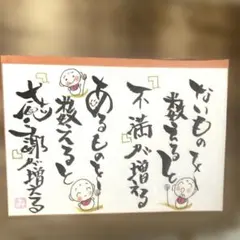 ないものを
数えると
不満が増える
あるものを
数えると
感謝が増える